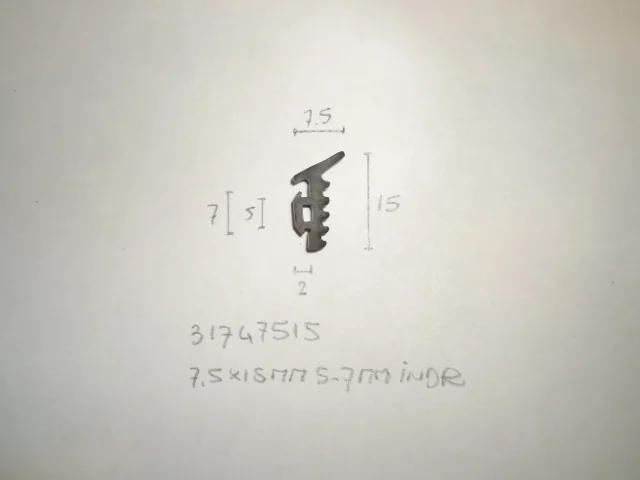 7.5
7
5
15
2
31747515
7.5X15MM 5-7MM INDR